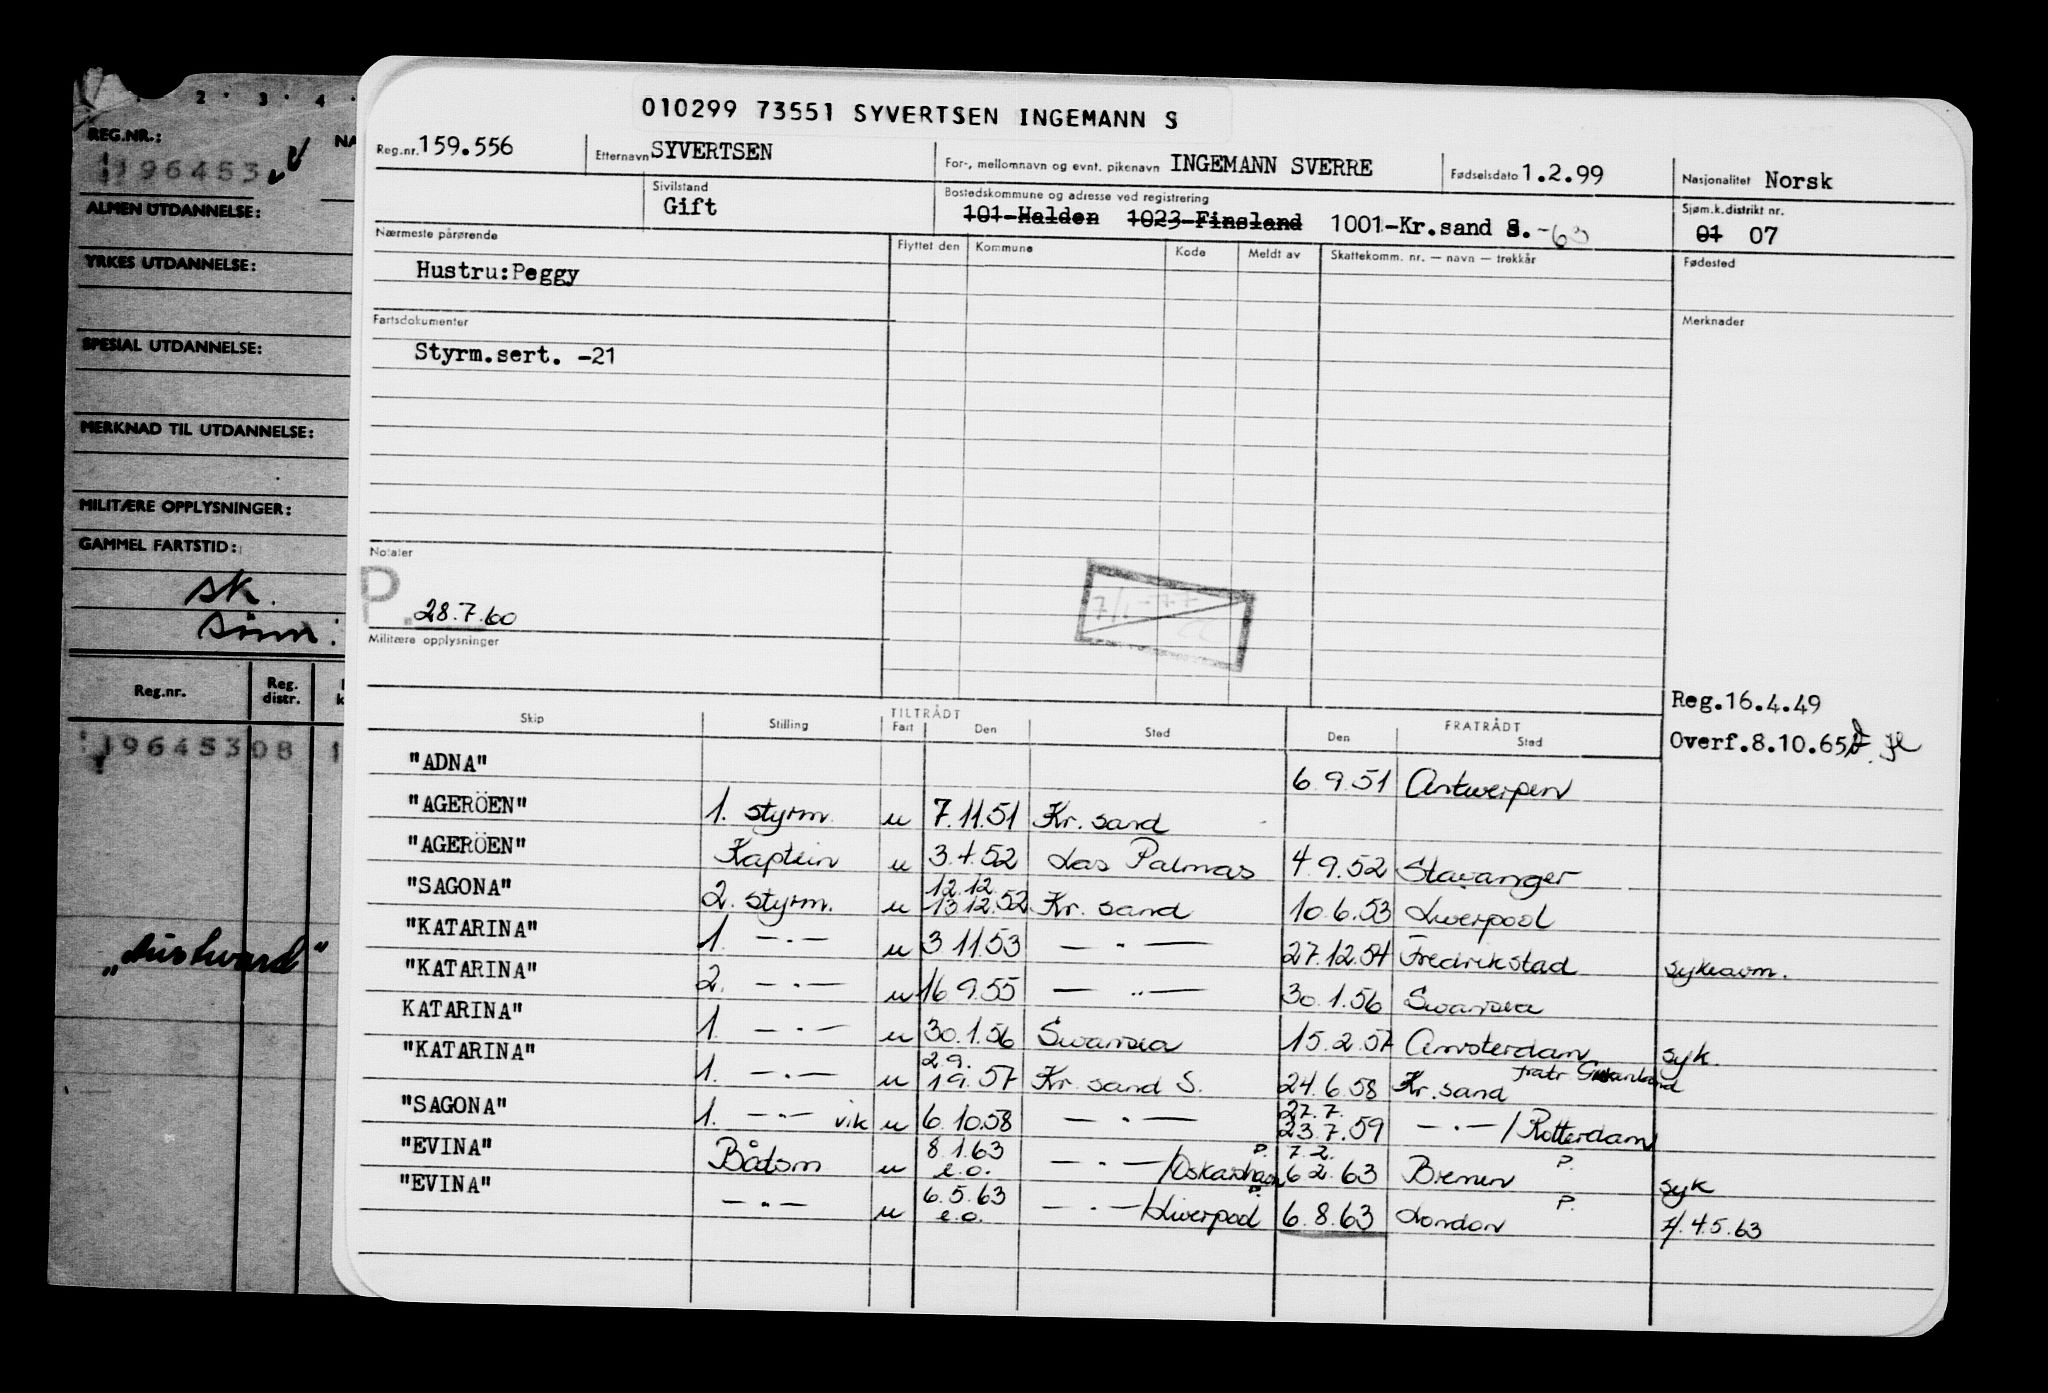 010299 73551 SYVERTSEN INGEMANN S
Reg.nr. 159.556 Etternavn SYVERTSEN For-, mellomnavn og evnt. pikenavn INGEMANN SVERRE Fødselsdato 1.2.99 Nasjonalitet Norsk
Sivilstand Gift Bostedskommune og adresse ved registrering 101-Halden 1023-Finsland 1001-Kr.sand S. -63 Sjøm.k.distrikt nr. 01 07
Nærmeste pårørende Flyttet den Kommune Kode Meldt av Skattekomm. nr. — navn — trekkår Fødested
Hustru:Peggy
Fartsdokumenter Merknader
Styrm.sert. -21
Notater
P. 28.7.60
Militære opplysninger
Reg.16.4.49
Overf.8.10.65
TILTRÅDT FRATRÅDT
Skip Stilling Fart Den Sted Den Sted
"ADNA" 6.9.51 Antwerpen
"AGERÖEN" 1. styrm. u 7.11.51 Kr. sand
"AGERÖEN" Kaptein u 3.4.52 Las Palmas 4.9.52 Stavanger
"SAGONA" 2. styrm. u 12.12. 13.12.52 Kr. sand 10.6.53 Liverpool
"KATARINA" 1. — . — u 3.11.53 — . — 27.12.54 Fredrikstad sykeavm.
"KATARINA" 2. — . — u 16.9.55 — .. — 30.1.56 Swansea
KATARINA" 1. — . — u 30.1.56 Swansea 15.2.57 Amsterdam syk.
"KATARINA" 1. — . — u 2.9. 1.9.57 Kr. sand S. 24.6.58 Kr. sand fratr.
"SAGONA" 1. — . — vik u 6.10.58 — . — 27.7. 23.7.59 — . — / Rotterdam
"EVINA" Båtsm u 8.1.63 e.o. — . — /Oskarshavn P. 7.2. 6.2.63 Bremen P. syk
"EVINA" — . — u 6.5.63 e.o. — . — /Liverpool P. 6.8.63 London P. 4.5.63
2 . 3 . 4 .
REG.NR.: NA
196453
ALMEN UTDANNELSE:
YRKES UTDANNELSE:
SPESIAL UTDANNELSE:
MERKNAD TIL UTDANNELSE:
MILITÆRE OPPLYSNINGER:
GAMMEL FARTSTID:
sk.
Reg.nr. Reg. distr. k
196453 08 1